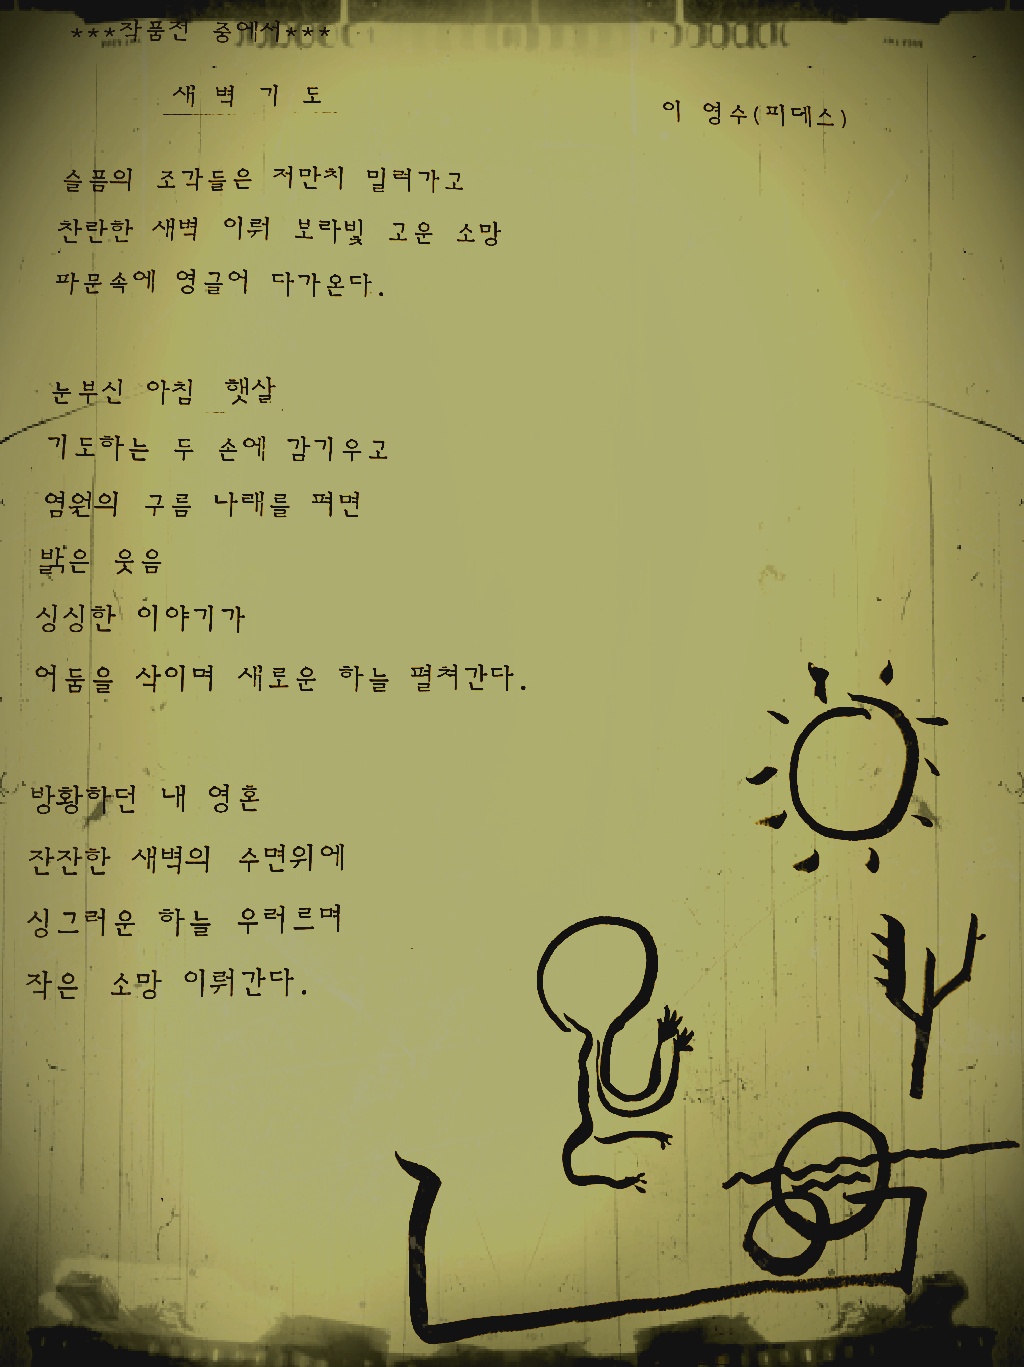 ***작품전 중에서***
새 벽 기 도
이 영수(피데스)
슬픔의 조각들은 저만치 밀려가고
찬란한 새벽 이뤄 보라빛 고운 소망
파문속에 영글어 다가온다.
눈부신 아침 햇살
기도하는 두 손에 감기우고
염원의 구름 나래를 펴면
밝은 웃음
싱싱한 이야기가
어둠을 삭이며 새로운 하늘 펼쳐간다.
방황하던 내 영혼
잔잔한 새벽의 수면위에
싱그러운 하늘 우러르며
작은 소망 이뤄간다.